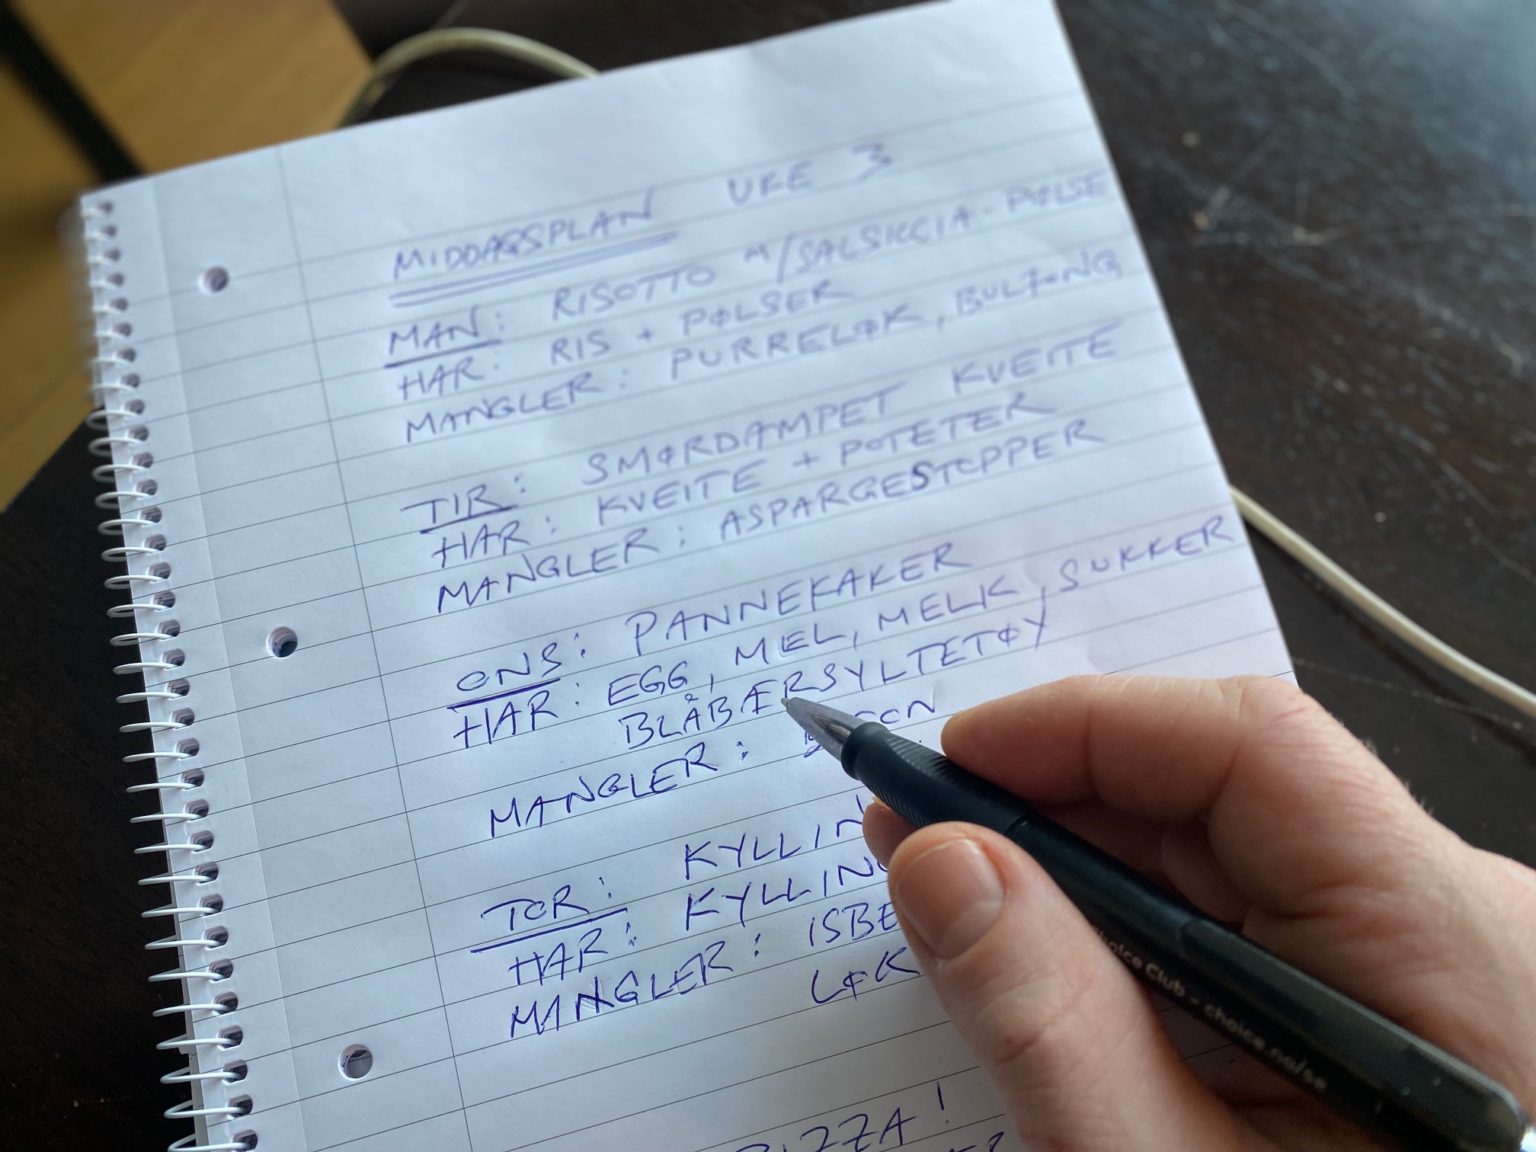 MIDDAGSPLAN UKE 3
MAN: RISOTTO M/SALSICCIA-PØLSE
HAR: RIS + PØLSER
MANGLER: PURRELØK, BULJONG
TIR: SMØRDAMPET KVEITE
HAR: KVEITE + POTETER
MANGLER: ASPARGESTOPPER
ONS: PANNEKAKER
HAR: EGG, MEL, MELK, SUKKER
BLÅBÆRSYLTETØY
MANGLER:
TOR: KYLLIN
HAR: KYLLING
MANGLER: ISBE
LØK
PIZZA!
Choice Club - choice.no/se